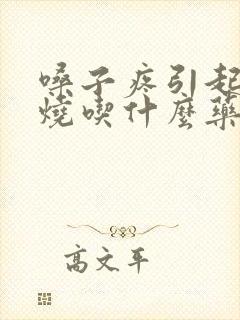 嗓子疼引起
燒喫什麼藥
高文平